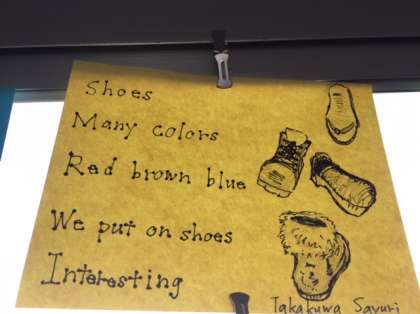 Shoes
Many colors
Red brown blue
We put on shoes
Interesting
Takakuwa Sayuri